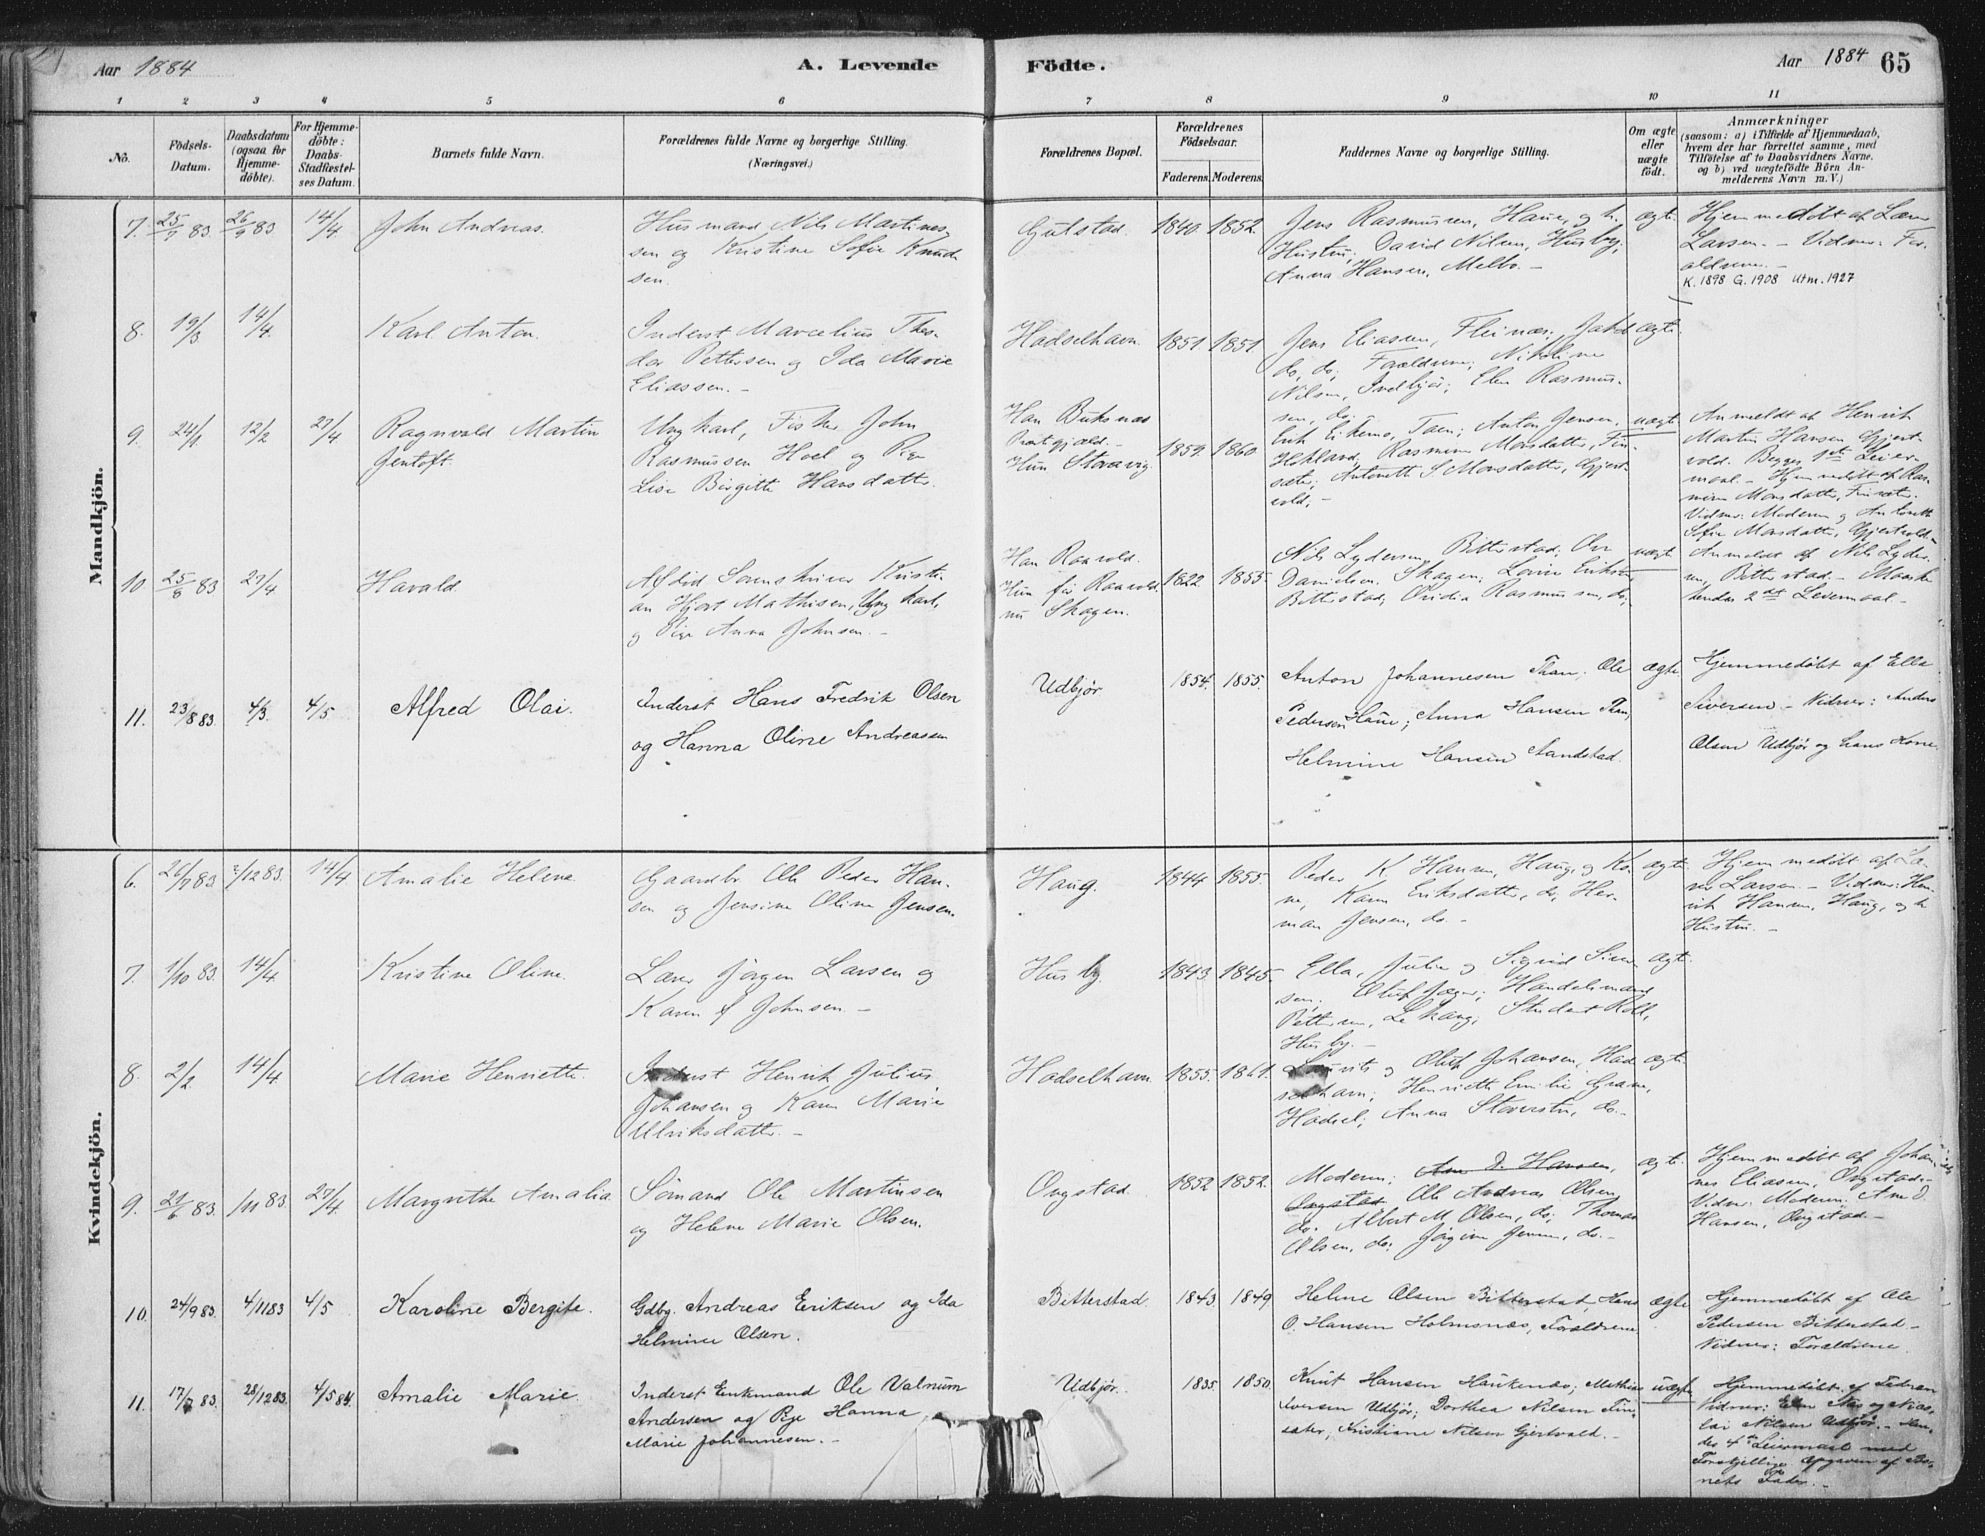 Aar 1884
A. Levende
Födte.
Aar 1884
65
1 2 3 4 5 6 7 8 9 10 11
No.
Födsels-
Datum.
Daabsdatum
(ogsaa for
Hjemme-
döbte).
For Hjemme-
döbte:
Daabs-
Stadfæstel-
ses Datum.
Barnets fulde Navn.
Forældrenes fulde Navne og borgerlige Stilling.
(Næringsvei.)
Forældrenes Bopæl.
Forældrenes
Födselsaar.
Faderens. Moderens.
Faddernes Navne og borgerlige Stilling.
Om ægte
eller
uægte
födt.
Anmærkninger
(saasom: a) i Tilfælde af Hjemmedaab,
hvem der har forrettet samme, med
Tilföielse af to Daabsvidners Navne.
og b) ved uægtefödte Börn An-
melderens Navn m. V.)
Mandkjön.
7. 25/7 83 26/9 83 14/4
John Andreas.
Husmand Nils Martines-
sen og Kristine Sofie Knud-
sen.
Gulstad.
1840. 1852.
Jens Rasmussen, Haug, og h.
Hustru, David Nilsen, Husby,
Anna Hansen, Melbo. -
ægte
Hjemmedøbt af Lærer
Larsen. - Vidner: For-
ældrene. -
K. 1898 G. 1908 Utm. 1927
8. 19/3 14/4
Karl Anton.
Inderst Marcelius Theo-
dor Pettersen og Ida Marie
Eliassen. -
Hadselhavn.
1851. 1851.
Jens Eliassen, Fleinæs; Jakob
do, do; Forældrene; Nikoline
Nilsen, Indbjör; Elen Rasmus-
sen, do.
ægte.
9. 24/1 12/2 27/4
Ragnvald Martin
Jentoft.
Ungkarl, Fisker John
Rasmussen Hoel og Pige
Lise Birgitte Hansdatter.
Han Buksnæs
Præstegjæld. -
Hun Storavig
1859. 1860.
Erik Eikemo, Taen; Anton Jensen,
Hokland; Rasmine Monsdatter, Fin-
sæter; Antonette S Monsdatter, Gjert-
vold, -
uægte
Anmeldt af Henrik
Martin Hansen Gjert-
vold. Begges 1ste Leier-
maal. - Hjemmedöbt af Ras-
mine Monsdatter, Finsæter.
Vidner: Moderen og Antonette
Sofie Monsdatter, Gjertvold.
10. 25/8 83 27/4
Havald.
Afdød Sorenskriver Kristi-
an Hjort Mathisen, Ungkarl,
og Pige Anna Johnsen. -
Han Raavold.
Hun før Raavold
nu Skagen.
1822. 1855.
Nils Lydersen, Bitterstad; Ove
Danielsen, Skagen; Lovise Eriksen,
Bitterstad; Ovidia Rasmussen, do;
uægte
Anmeldt af Nils Lyder-
sen, Bitterstad. - Maaske
hendes 2det Leiermaal. -
11. 23/8 83 4/3. 4/5
Alfred Olai.
Inderst Hans Fredrik Olsen
og Hanna Oline Andreassen
Udbjör
1854. 1855.
Anton Johannesen Than. Ole
Pedersen Haug; Anna Hansen Than,
Helmine Hansen Sandstad.
ægte
Hjemmedöbt af Ella
Siversen - Vidner: Anders
Olsen Udbjör og hans Kone.
Kvindekjön.
6. 26/9 83 2/12 83. 14/4
Amalie Helene
Gaardbr Ole Peder Han-
sen og Jensine Oline Jensen.
Haug.
1844 1855.
Peder K Hansen, Haug, og Ko-
ne, Karen Eriksdatter, do, Her-
man Jensen, do. -
ægte.
Hjemmedøbt af Læ-
rer Larsen. - Vidner: Hen-
rik Hansen, Haug, og h
Hustru. -
7. 1/10 83 14/4
Kristine Oline.
Lærer Jörgen Larsen og
Karen J Johnsen -
Husby.
1843. 1845.
Ella, Julie og Sigrid Siver-
sen; Oluf Jæger; Handelsmand
Pettersen, Lekang; Student Roll,
Husby. -
ægte.
8. 2/2 14/4
Marie Henriette.
Inderst Henrik Julius
Johansen og Karen Marie
Ulriksdatter. -
Hadselhavn
1855. 1861.
Laurits og Oluf Johansen, Had-
selhavn; Henriette Emilie Grave,
Hadsel; Anna Staversen, do. -
ægte
9. 21/6 83. /11 83 27/4
Margrethe Amalia
Sömand Ole Martinsen
og Helene Marie Olsen.
Ongstad.
1852 1852.
Moderen; Ane D. Hansen,
Ongstad; Ole Andreas Olsen
do; Albert M Olsen, do; Thomas
Olsen, do; Jörgine Jensen, do. -
ægte.
Hjemmedøbt af Johan-
nes Eliasen, Ongstad. -
Vidner: Moderen; Ane D.
Hansen, Ongstad. -
10. 24/9 83. 4/11 83 4/5
Karoline Bergite.
Gdbg. Andreas Eriksen og Ida
Helmine Olsen.
Bitterstad.
1843. 1849
Helene Olsen Bitterstad, Hans
O. Hansen Holmsnæs, Forældrene
ægte
Hjemmedöbt af Ole
Pedersen Bitterstad -
Vidner: Forældrene.
11. 17/7 83 28/12 83. 4/5 84.
Amalie Marie.
Inderst Enkmand Ole Valnum
Andersen og Pige Hanna
Marie Johannesen. -
Udbjör.
1835. 1850.
Knut Hansen Haukenæs; Mathias
Iversen Udbjör; Dorthea Nilsen Fin-
sæter, Kristiane Nilsen Gjertvold. -
uægte
Hjemmedöbt af Fedran
Vidner: og Nico-
lai Nilsen Udbjör. - Hen-
des 4de Leiermaal med
Forskjellige Opgaven af Bar-
nets Fader. -